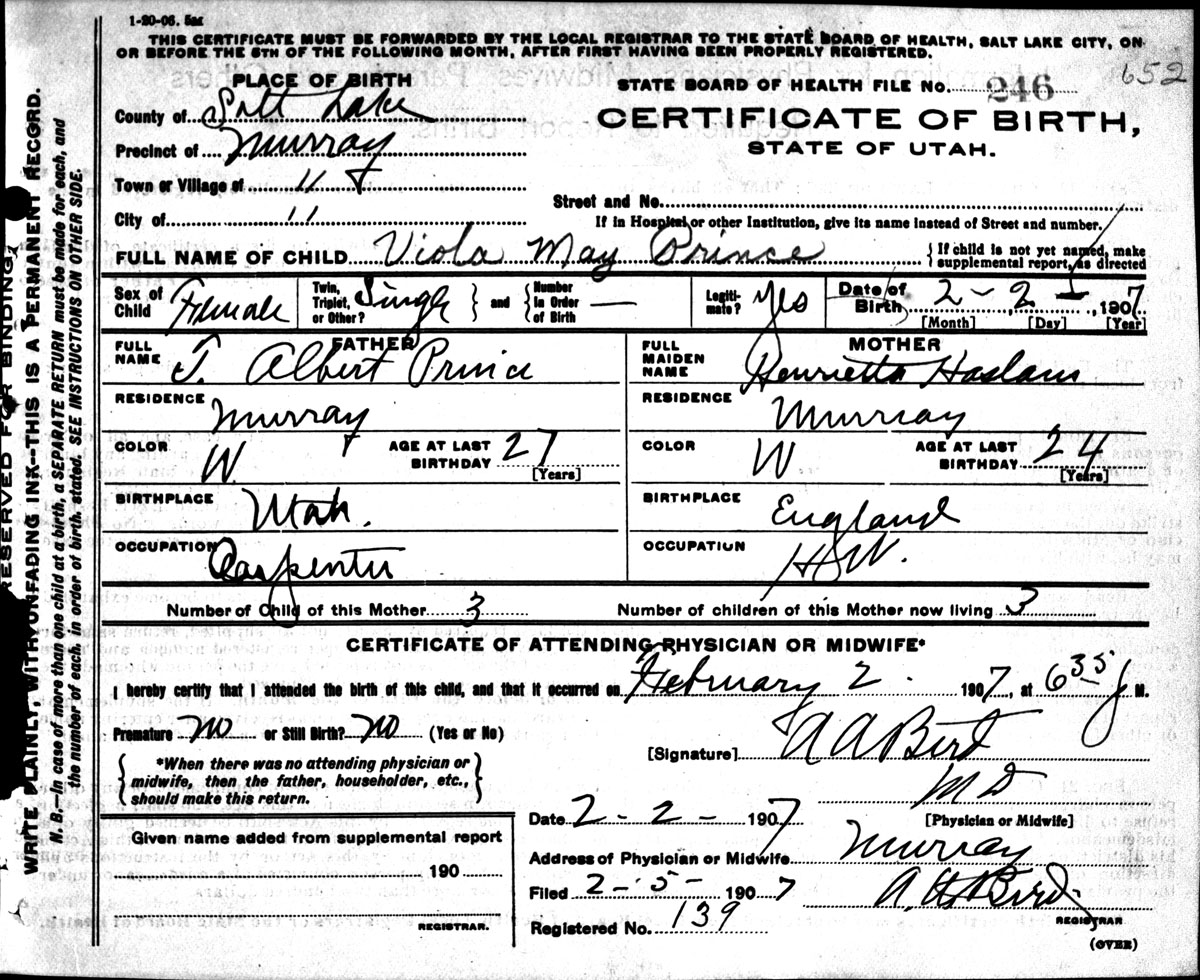 1-20-06. 5m
THIS CERTIFICATE MUST BE FORWARDED BY THE LOCAL REGISTRAR TO THE STATE BOARD OF HEALTH, SALT LAKE CITY, ON
OR BEFORE THE 5TH OF THE FOLLOWING MONTH, AFTER FIRST HAVING BEEN PROPERLY REGISTERED.
652
PLACE OF BIRTH
STATE BOARD OF HEALTH FILE NO. 246
County of Salt Lake
CERTIFICATE OF BIRTH,
Precinct of Murray
STATE OF UTAH.
Town or Village of "
Street and No.
City of "
If in Hospital or other Institution, give its name instead of Street and number.
FULL NAME OF CHILD Viola May Prince
{If child is not yet named, make
supplemental report, as directed
Sex of Child Female
Twin, Triplet, or Other? Single } and { Number In Order of Birth —
Legitimate? Yes
Date of Birth 2 - 2 -, 1907
[Month] [Day] [Year]
FATHER
FULL NAME J. Albert Prince
MOTHER
FULL MAIDEN NAME Henrietta Haslam
RESIDENCE Murray
RESIDENCE Murray
COLOR W. AGE AT LAST BIRTHDAY 27 [Years]
COLOR W AGE AT LAST BIRTHDAY 24 [Years]
BIRTHPLACE Utah.
BIRTHPLACE England
OCCUPATION Carpenter
OCCUPATION H.W.
Number of Child of this Mother 3
Number of children of this Mother now living 3
CERTIFICATE OF ATTENDING PHYSICIAN OR MIDWIFE*
I hereby certify that I attended the birth of this child, and that it occurred on February 2. 1907, at 6 35 M.
Premature no or Still Birth? no (Yes or No)
[Signature] A A Bird
M D
[Physician or Midwife]
*When there was no attending physician or
midwife, then the father, householder, etc.,
should make this return.
Date 2 - 2 - 1907
Given name added from supplemental report
190
REGISTRAR.
Address of Physician or Midwife Murray
Filed 2 - 5 - 1907
A. Bird
REGISTRAR
Registered No. 139
(OVER)
RESERVED FOR BINDING
WRITE PLAINLY, WITH UNFADING INK--THIS IS A PERMANENT RECORD.
N. B.—In case of more than one child at a birth, a SEPARATE RETURN must be made for each, and
the number of each, in order of birth, stated. SEE INSTRUCTIONS ON OTHER SIDE.